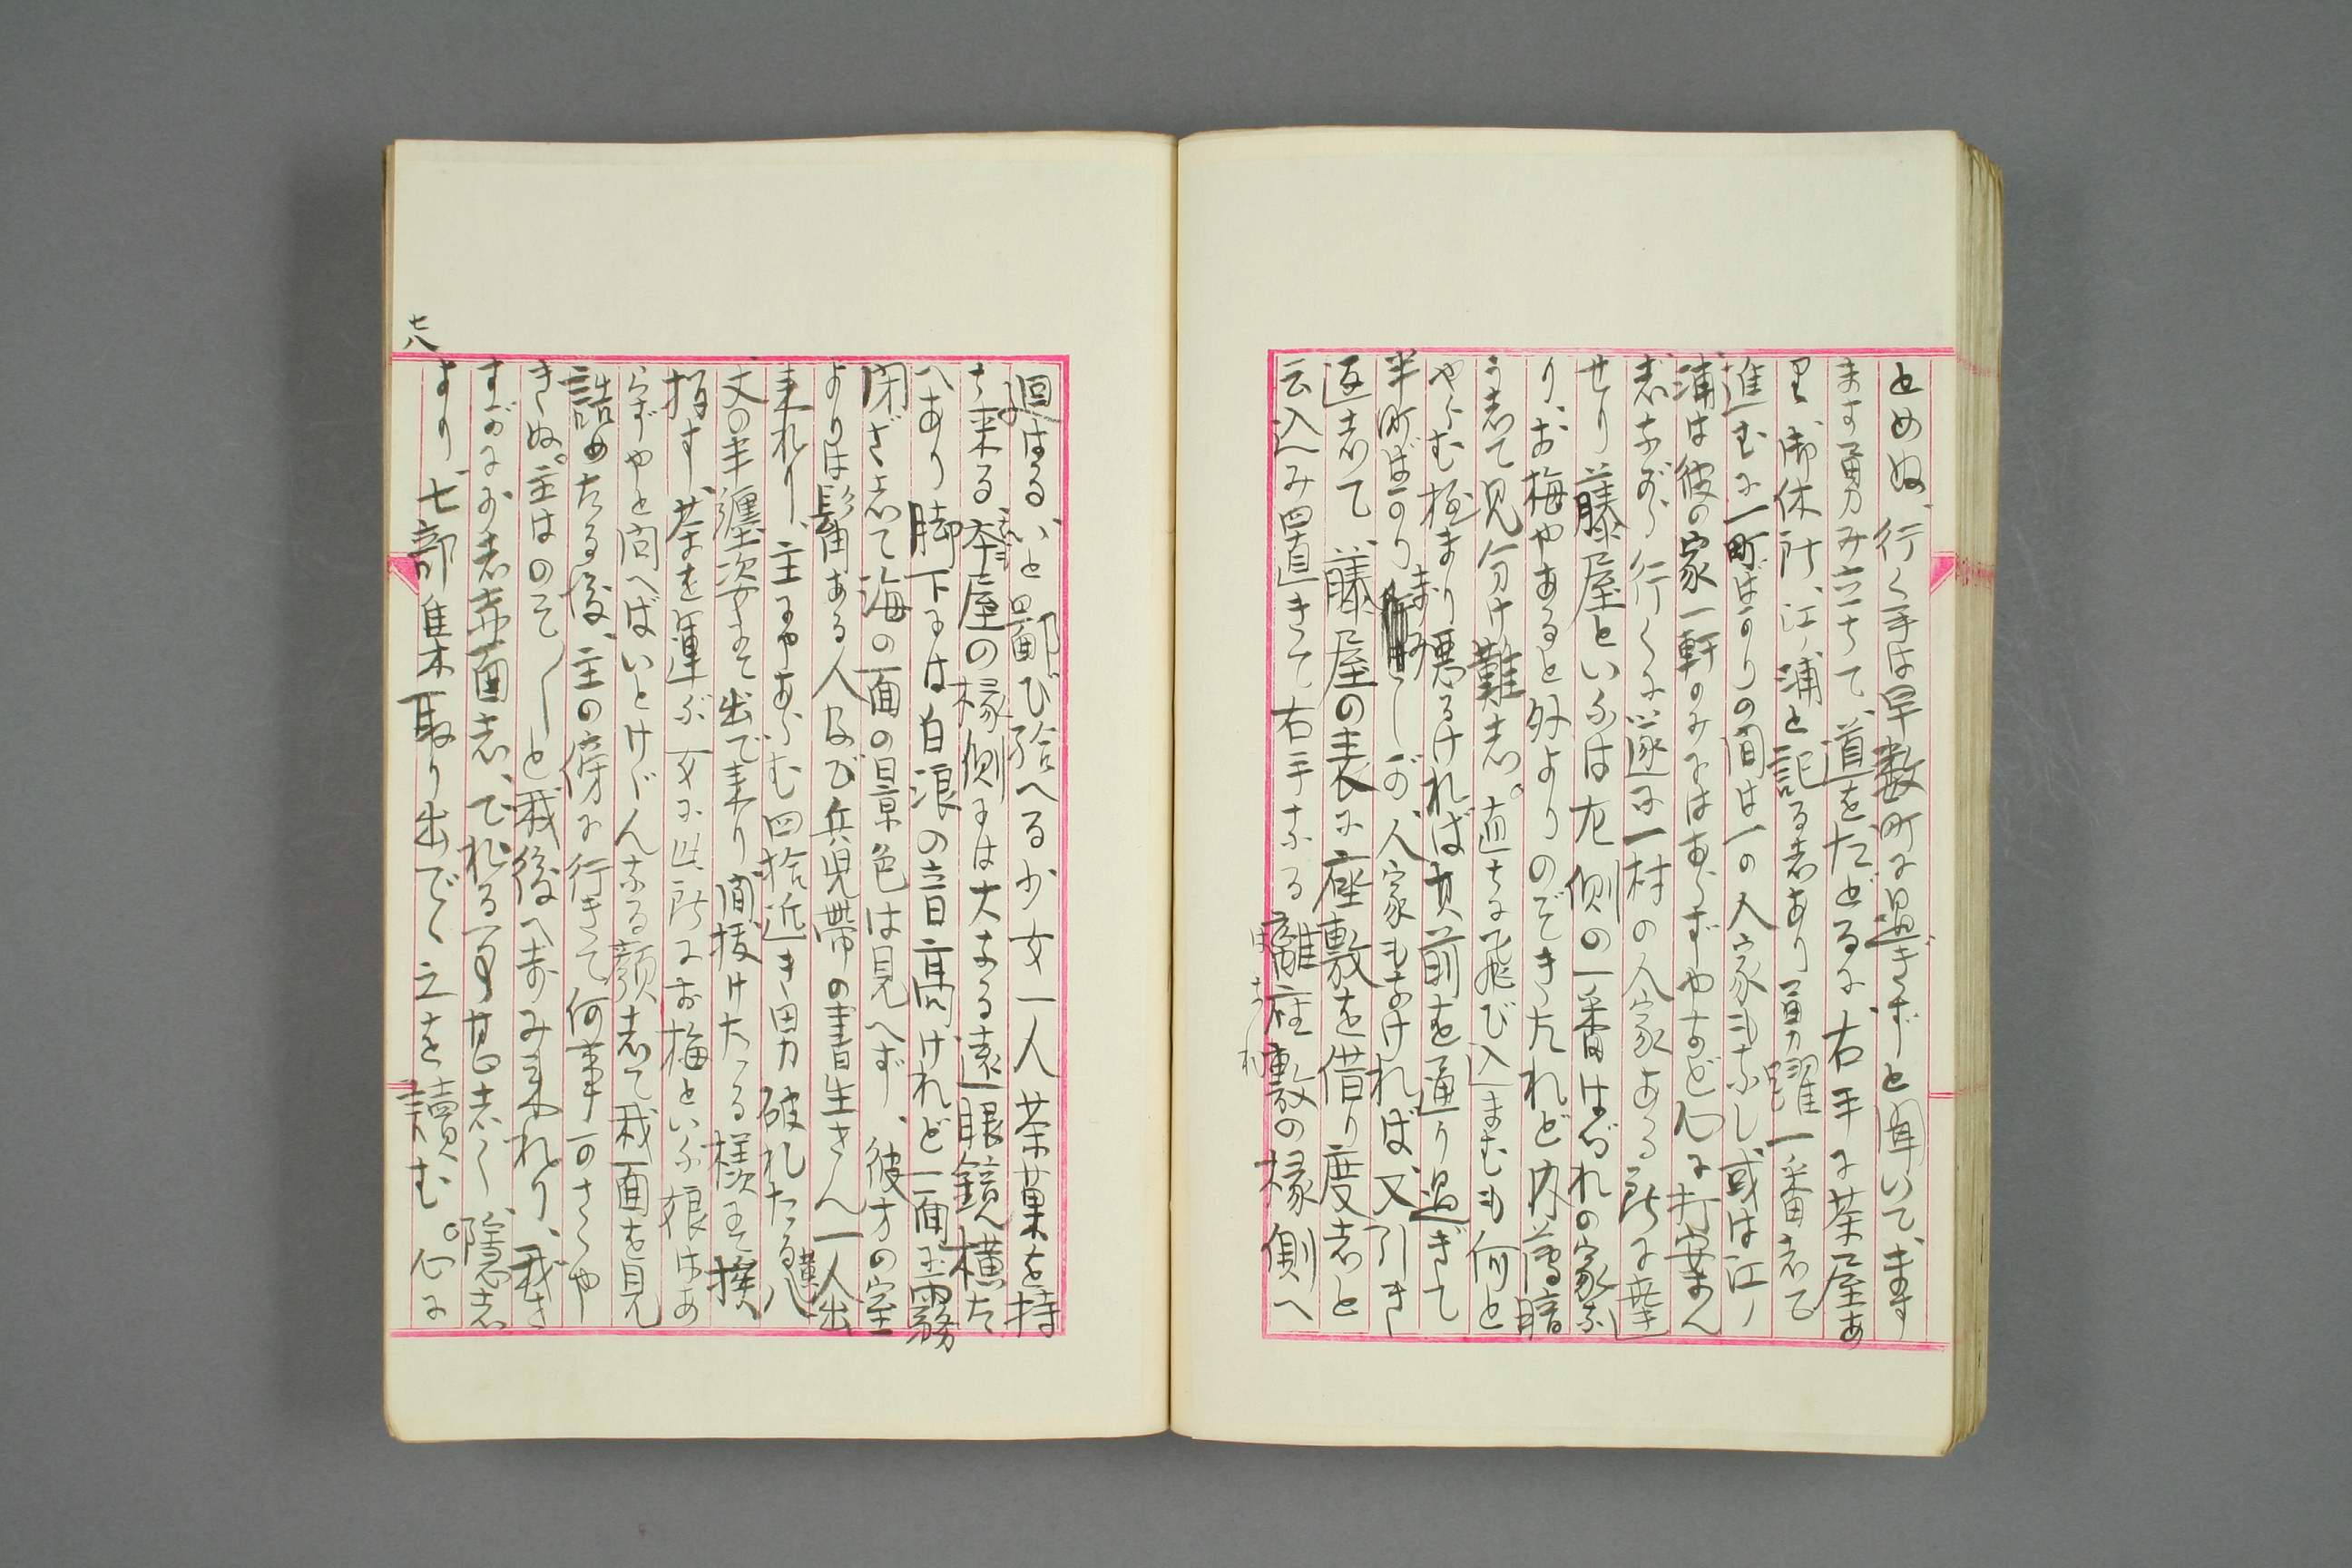 とめぬ、行く手は早数町に過ぎずと聞いて、ます
ます勇み立ちて、道をたどるに、右手に茶屋あ
り、御休所、江ノ浦と記る志あり勇躍一番志て
進むに一町ばかりの間は一の人家もなし或は江ノ
浦は彼の家一軒のみにはあらずやなど心に打案ん
志ながら行くに遂に一村の人家ある所に達
せり藤屋といふは左側の一番はづれの家な
り、お梅やあると外よりのぞきたれど内薄暗
うして見分け難志。直ちに飛び入まむも何と
やらむ極まり悪るければ其前を通り過ぎて
半町ばかり歩みしが、人家もなければ又引き
返志て、藤屋の表に座敷を借り度志と
云入へみ四直きて右手なる離座敷の縁側へ
廻はるいと鄙び給へる少女一人茶菓を持
ち来る本屋の縁側には大なる遠眼鏡横た
へあり脚下には白浪の音高けれど一面に霧
閉ざ志て海の面の景色は見へず、彼方の室
より髯ある人及び兵児帯の書生さん一人出
来れり、主にやあらむ四拾近き男破れたる八
丈の半纏姿にて出で来り間抜けたる様にて挨
拶す、茶を運ぶ女に此所にお梅といふ娘はあ
らずやと問へばいとけげんなる顔志て我面を見
詰めたる後、主の傍に行きて何事かさゝや
きぬ。主はのそ〱と我後へ歩み来れり、我さ
すがにお志赤面志、でれる事甚志く、隠志
より、七部集取り出でゝ之を讀む。心に
七八